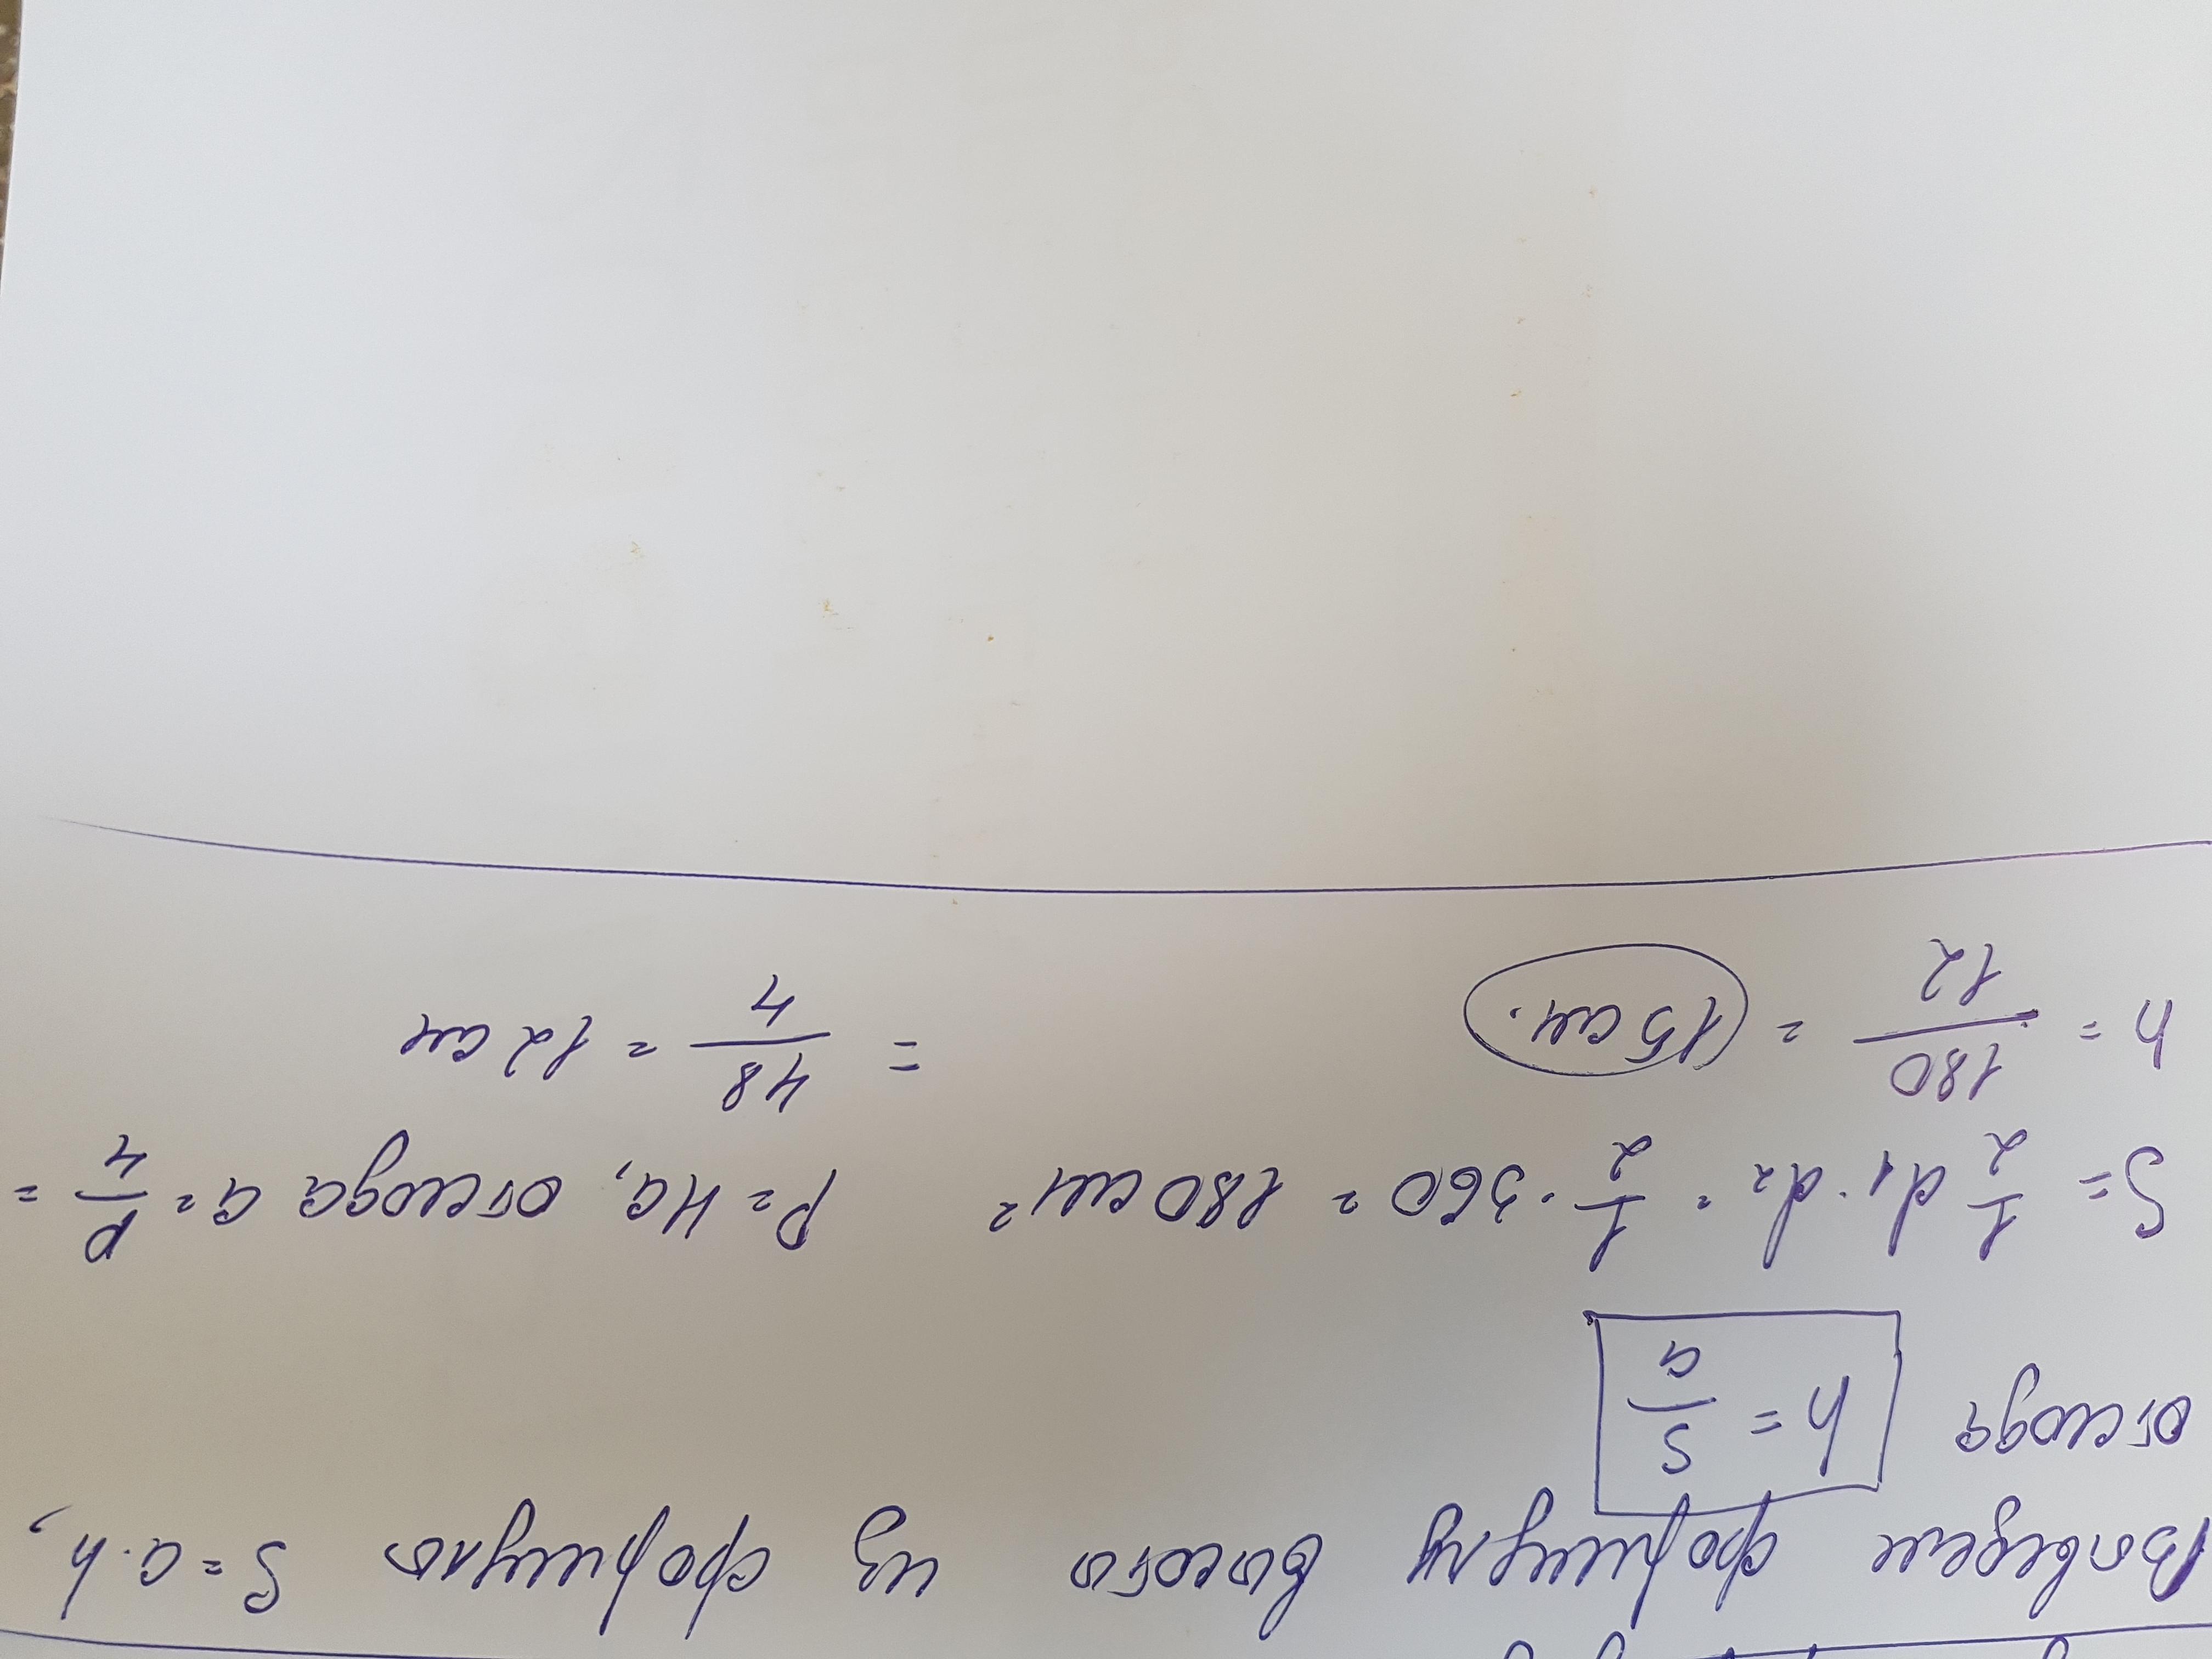 Выведем формулу высоты из формулы S = a·h,
отсюда h = S/a
S = 1/2 d1·d2 = 1/2·360 = 180 см² P = 4a, отсюда a = P/4 =
h = 180/12 = 15 см. = 48/4 = 12 см